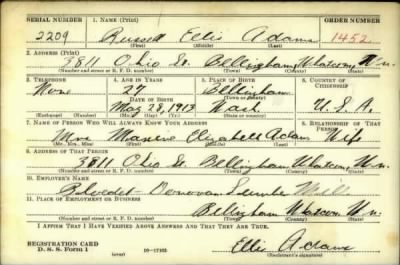 SERIAL NUMBER 1. NAME (Print) ORDER NUMBER
2209 Russell Ellis Adams 1452
(First) (Middle) (Last)
2. ADDRESS (Print)
3811 Ohio St. Bellingham, Whatcom, Wn.
(Number and street or R. F. D. number) (Town) (County) (State)
3. TELEPHONE 4. AGE IN YEARS 5. PLACE OF BIRTH 6. COUNTRY OF CITIZENSHIP
None 27 Bellingham
DATE OF BIRTH (Town or county)
May 28, 1913 Wash U. S. A.
(Exchange) (Number) (Mo.) (Day) (Yr.) (State or country)
7. NAME OF PERSON WHO WILL ALWAYS KNOW YOUR ADDRESS 8. RELATIONSHIP OF THAT PERSON
Mrs Elizabeth Adams Wife
(Mr., Mrs., Miss) (First) (Middle) (Last)
9. ADDRESS OF THAT PERSON
3811 Ohio St. Bellingham, Whatcom, Wn.
(Number and street or R. F. D. number) (Town) (County) (State)
10. EMPLOYER'S NAME
Bloedel-Donovan Lumber Mills
11. PLACE OF EMPLOYMENT OR BUSINESS
Bellingham Whatcom Wn.
(Number and street or R. F. D. number) (Town) (County) (State)
I AFFIRM THAT I HAVE VERIFIED ABOVE ANSWERS AND THAT THEY ARE TRUE.
REGISTRATION CARD
D. S. S. Form 1 (over) Ellis Adams
(Registrant's signature)